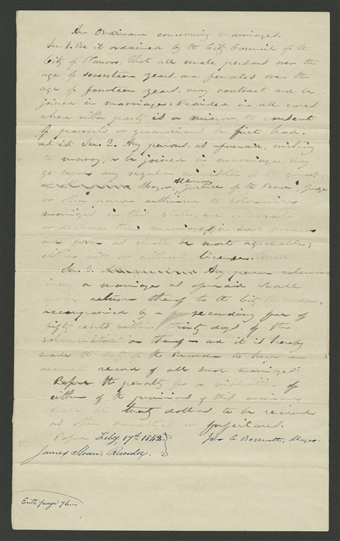 An Ordinance concerning marriages.
Sec. 1. Be it ordained by the City Council of the
City of Nauvoo, That all male persons over the
age of seventeen years, and females over the
age of fourteen years, may contract and be
joined in marriage: Provided in all cases
where either party is a minor, the consent
of parents or guardians be first had.
Sec. 2. Any persons as aforesaid, wishing
to marry, or be joined in marriage, may
go before any regular minister of the gospel,
Mayor, Alderman, Justice of the Peace, Judge,
or other person authorized to solemnize
marriages in this
or declare their marriage, in such manner
and form as shall be most agreeable,
either with or without license.
Sec. 3. Any person solemnizing
a marriage as aforesaid shall
make return thereof to the City Recorder,
accompanied by a recording fee of
twenty five cents within thirty days of the
solemnization thereof and it is hereby
made the duty of the Recorder to keep an
accurate record of all such marriages.
the penalty for a violation of
either of the provisions of this ordinance
shall be twenty dollars to be recovered
as other forfeitures.
Passed Feby 17th 1842
John C. Bennett, Mayor.
James Sloan, Recorder.
page 76